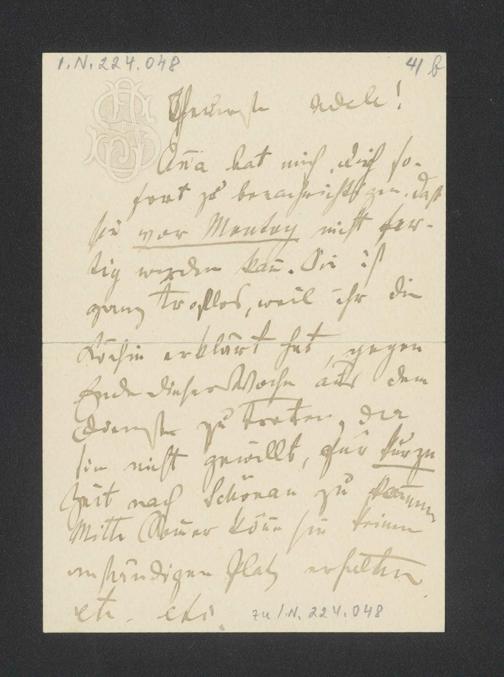 I.N. 224.048
4/b
Theuerste Adele!
Anna hat mich, dich so-
fort zu benachrichtigen, daß
sie vor Montag nicht fer-
tig werden kann. Sie ist
ganz trostlos, weil ihr die
Köchin erklärt hat, gegen
Ende dieser Woche aus dem
Dienste zu treten, da
sie nicht gewillt, für kurze
Zeit nach Schönau zu kommen
Mitte Sommer könne sie keinen
anständigen Platz erhalten
etc. etc.
zu I.N. 224.048